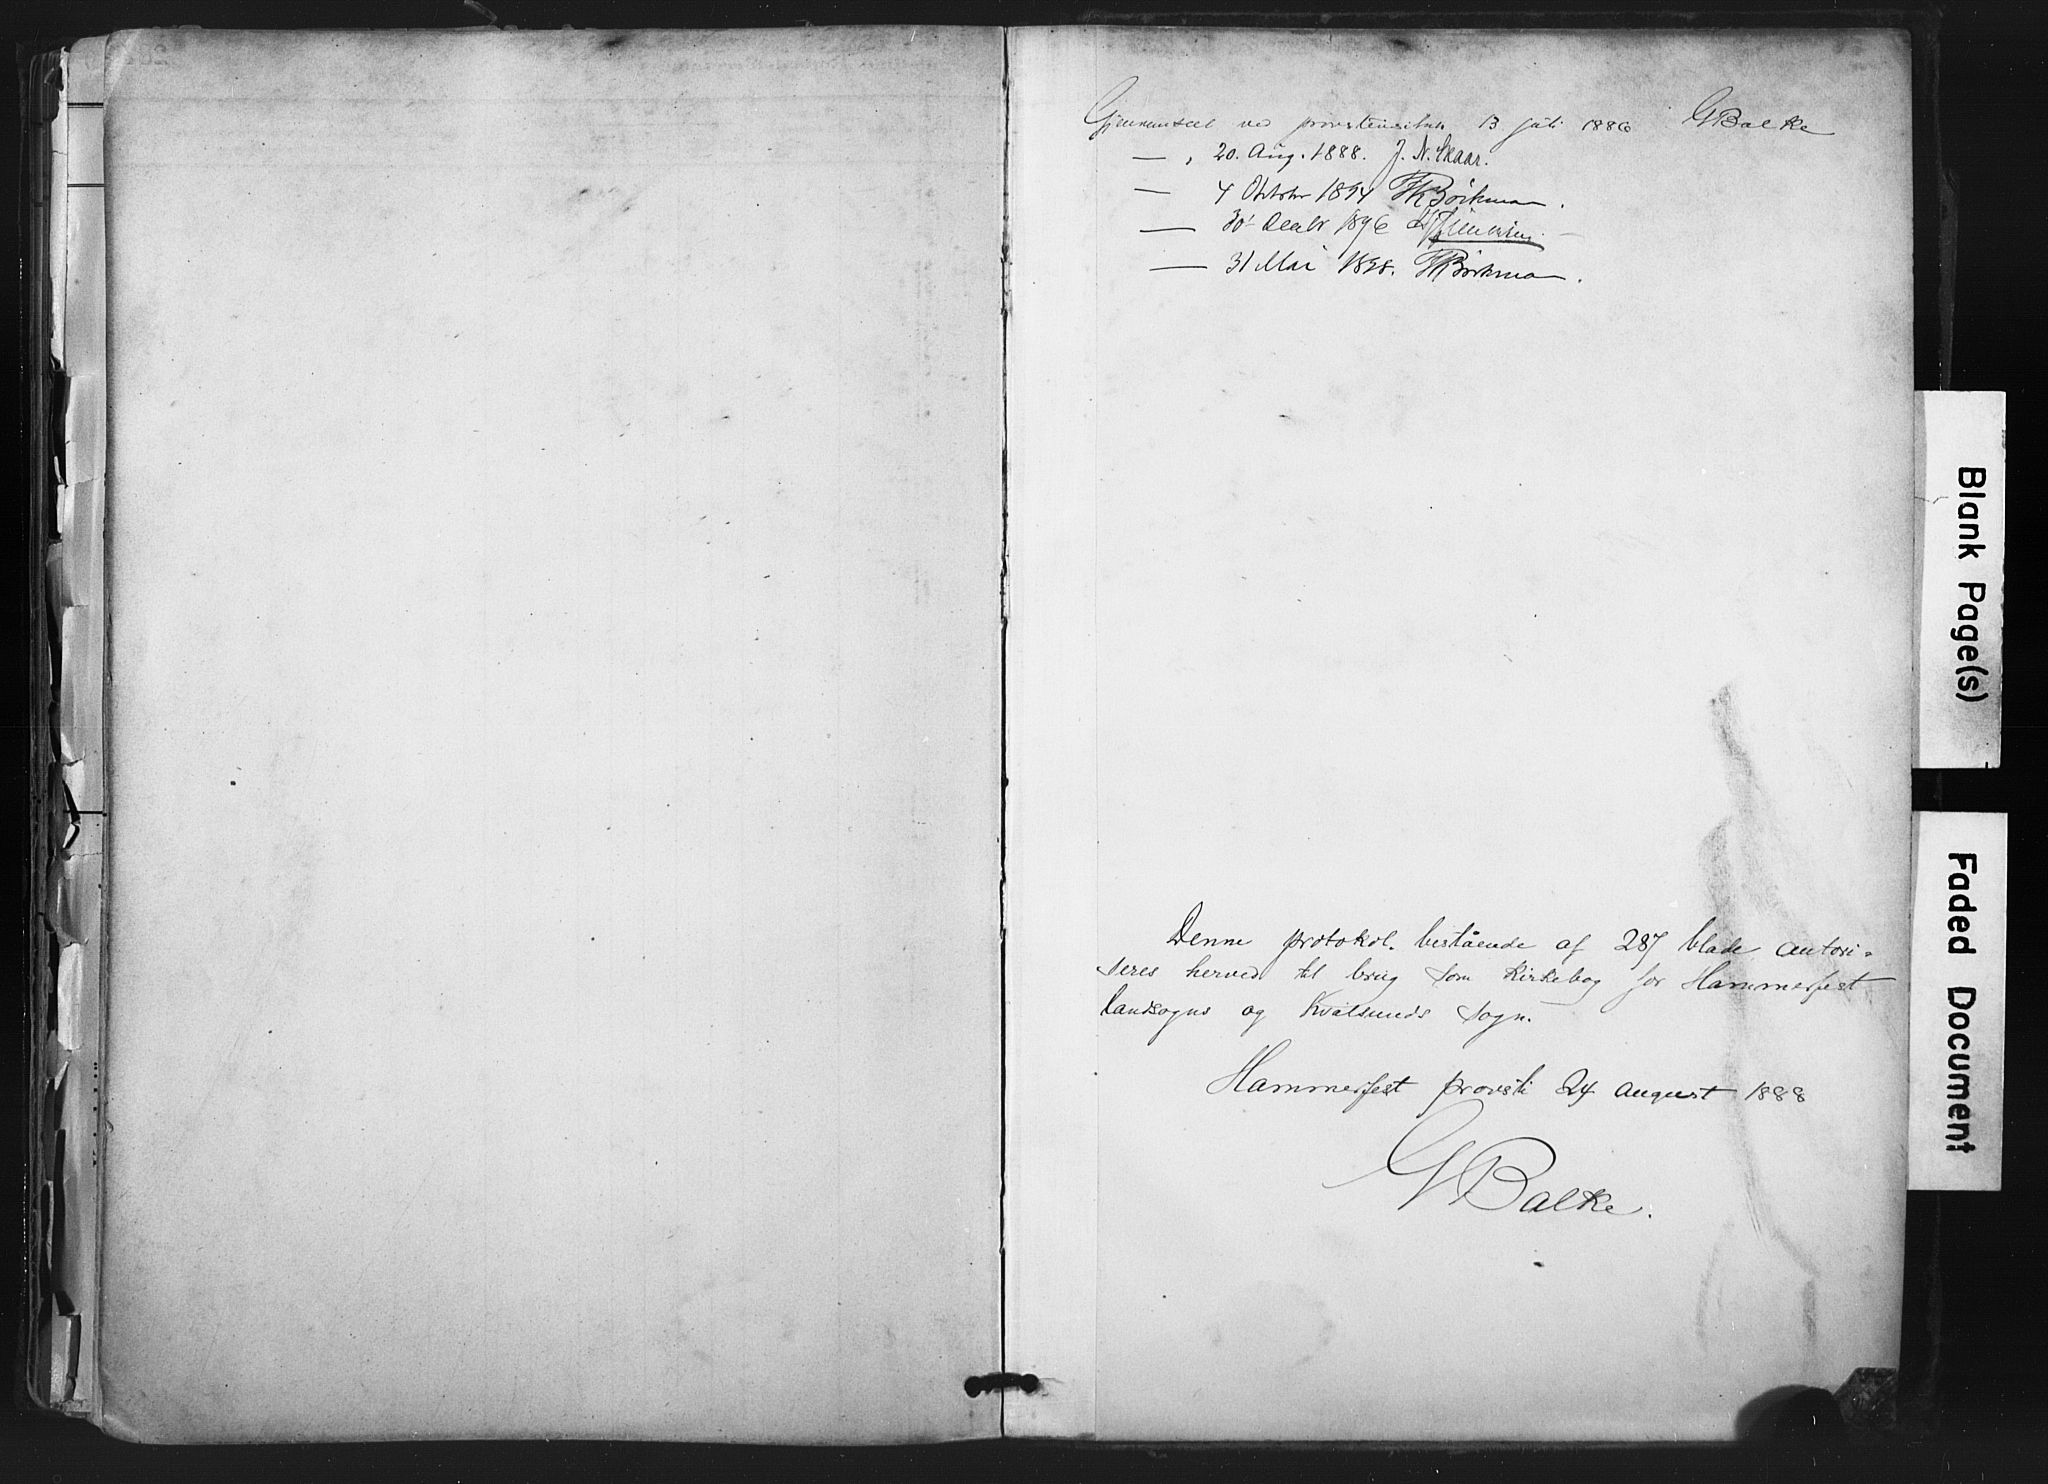 Gjennemseet ved provstevisitas 13 juli 1886 GBalke
— , 20. Aug. 1888. J. N. Skaar.
— 4 Oktober 1894 Børkman.
— 30' Decbr 1896
— 31 Mai 1898. Børkman.
Denne protokol. bestående af 287 blade autori-
seres herved til brug som kirkebog for Hammerfest
landsogns og Kvalsunds sogn.
Hammerfest provsti 24 august 1888
GBalke.
Blank Page(s)
Faded Document